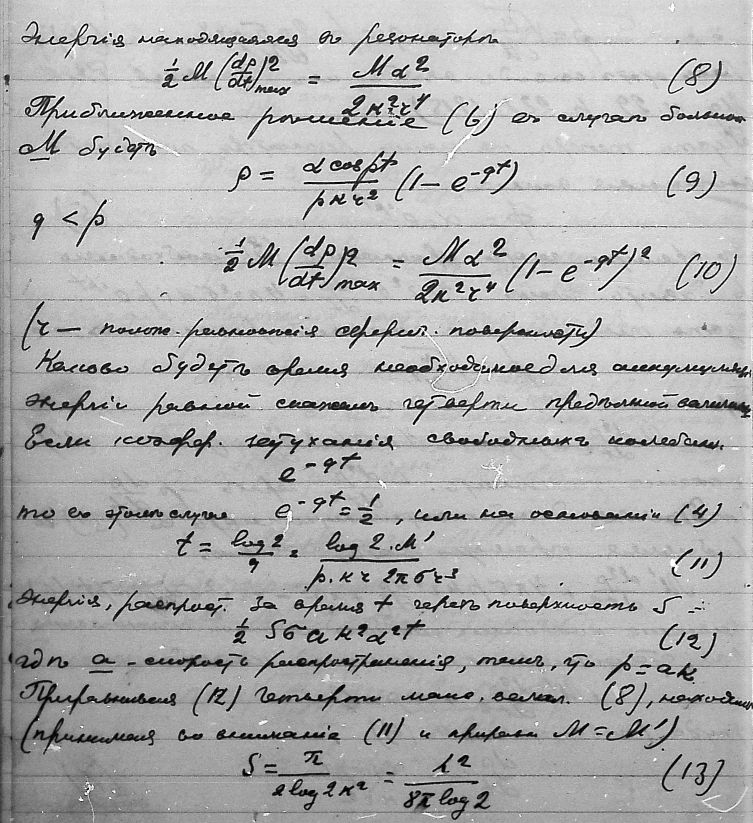 Энергія находящаяся въ резонаторѣ
1/2 M (dρ/dt)²max = Mα² / 2κ²r⁴ (8)
Приближенное рѣшеніе (6) въ случаѣ большого
M будетъ
ρ = α cos pt / pκr² (1 − e^−qt) (9)
q < p
1/2 M (dρ/dt)²max = Mα² / 2κ²r⁴ (1 − e^−qt)² (10)
(r — полож. равновѣсія сферич. поверхности)
Каково будетъ время необходимое для аккумуляціи
энергіи равной скажемъ четверти предѣльной величины
Если коэфф. затуханія свободныхъ колебан.
e^−qt
то въ этомъ случаѣ e^−qt = 1/2, или на основаніи (4)
t = log 2 / q = log 2 . M' / p.κr 2πσr³ (11)
Энергія, распрост. за время t черезъ поверхность S =
1/2 Sσaκ²α²t (12)
гдѣ a - скорость распространенія, такъ, что p = aκ
Приравнивая (12) четверти макс. велич. (8), находимъ
(принимая во вниманіе (11) и M = M')
S = π / 2 log 2 κ² = λ² / 8π log 2 (13)